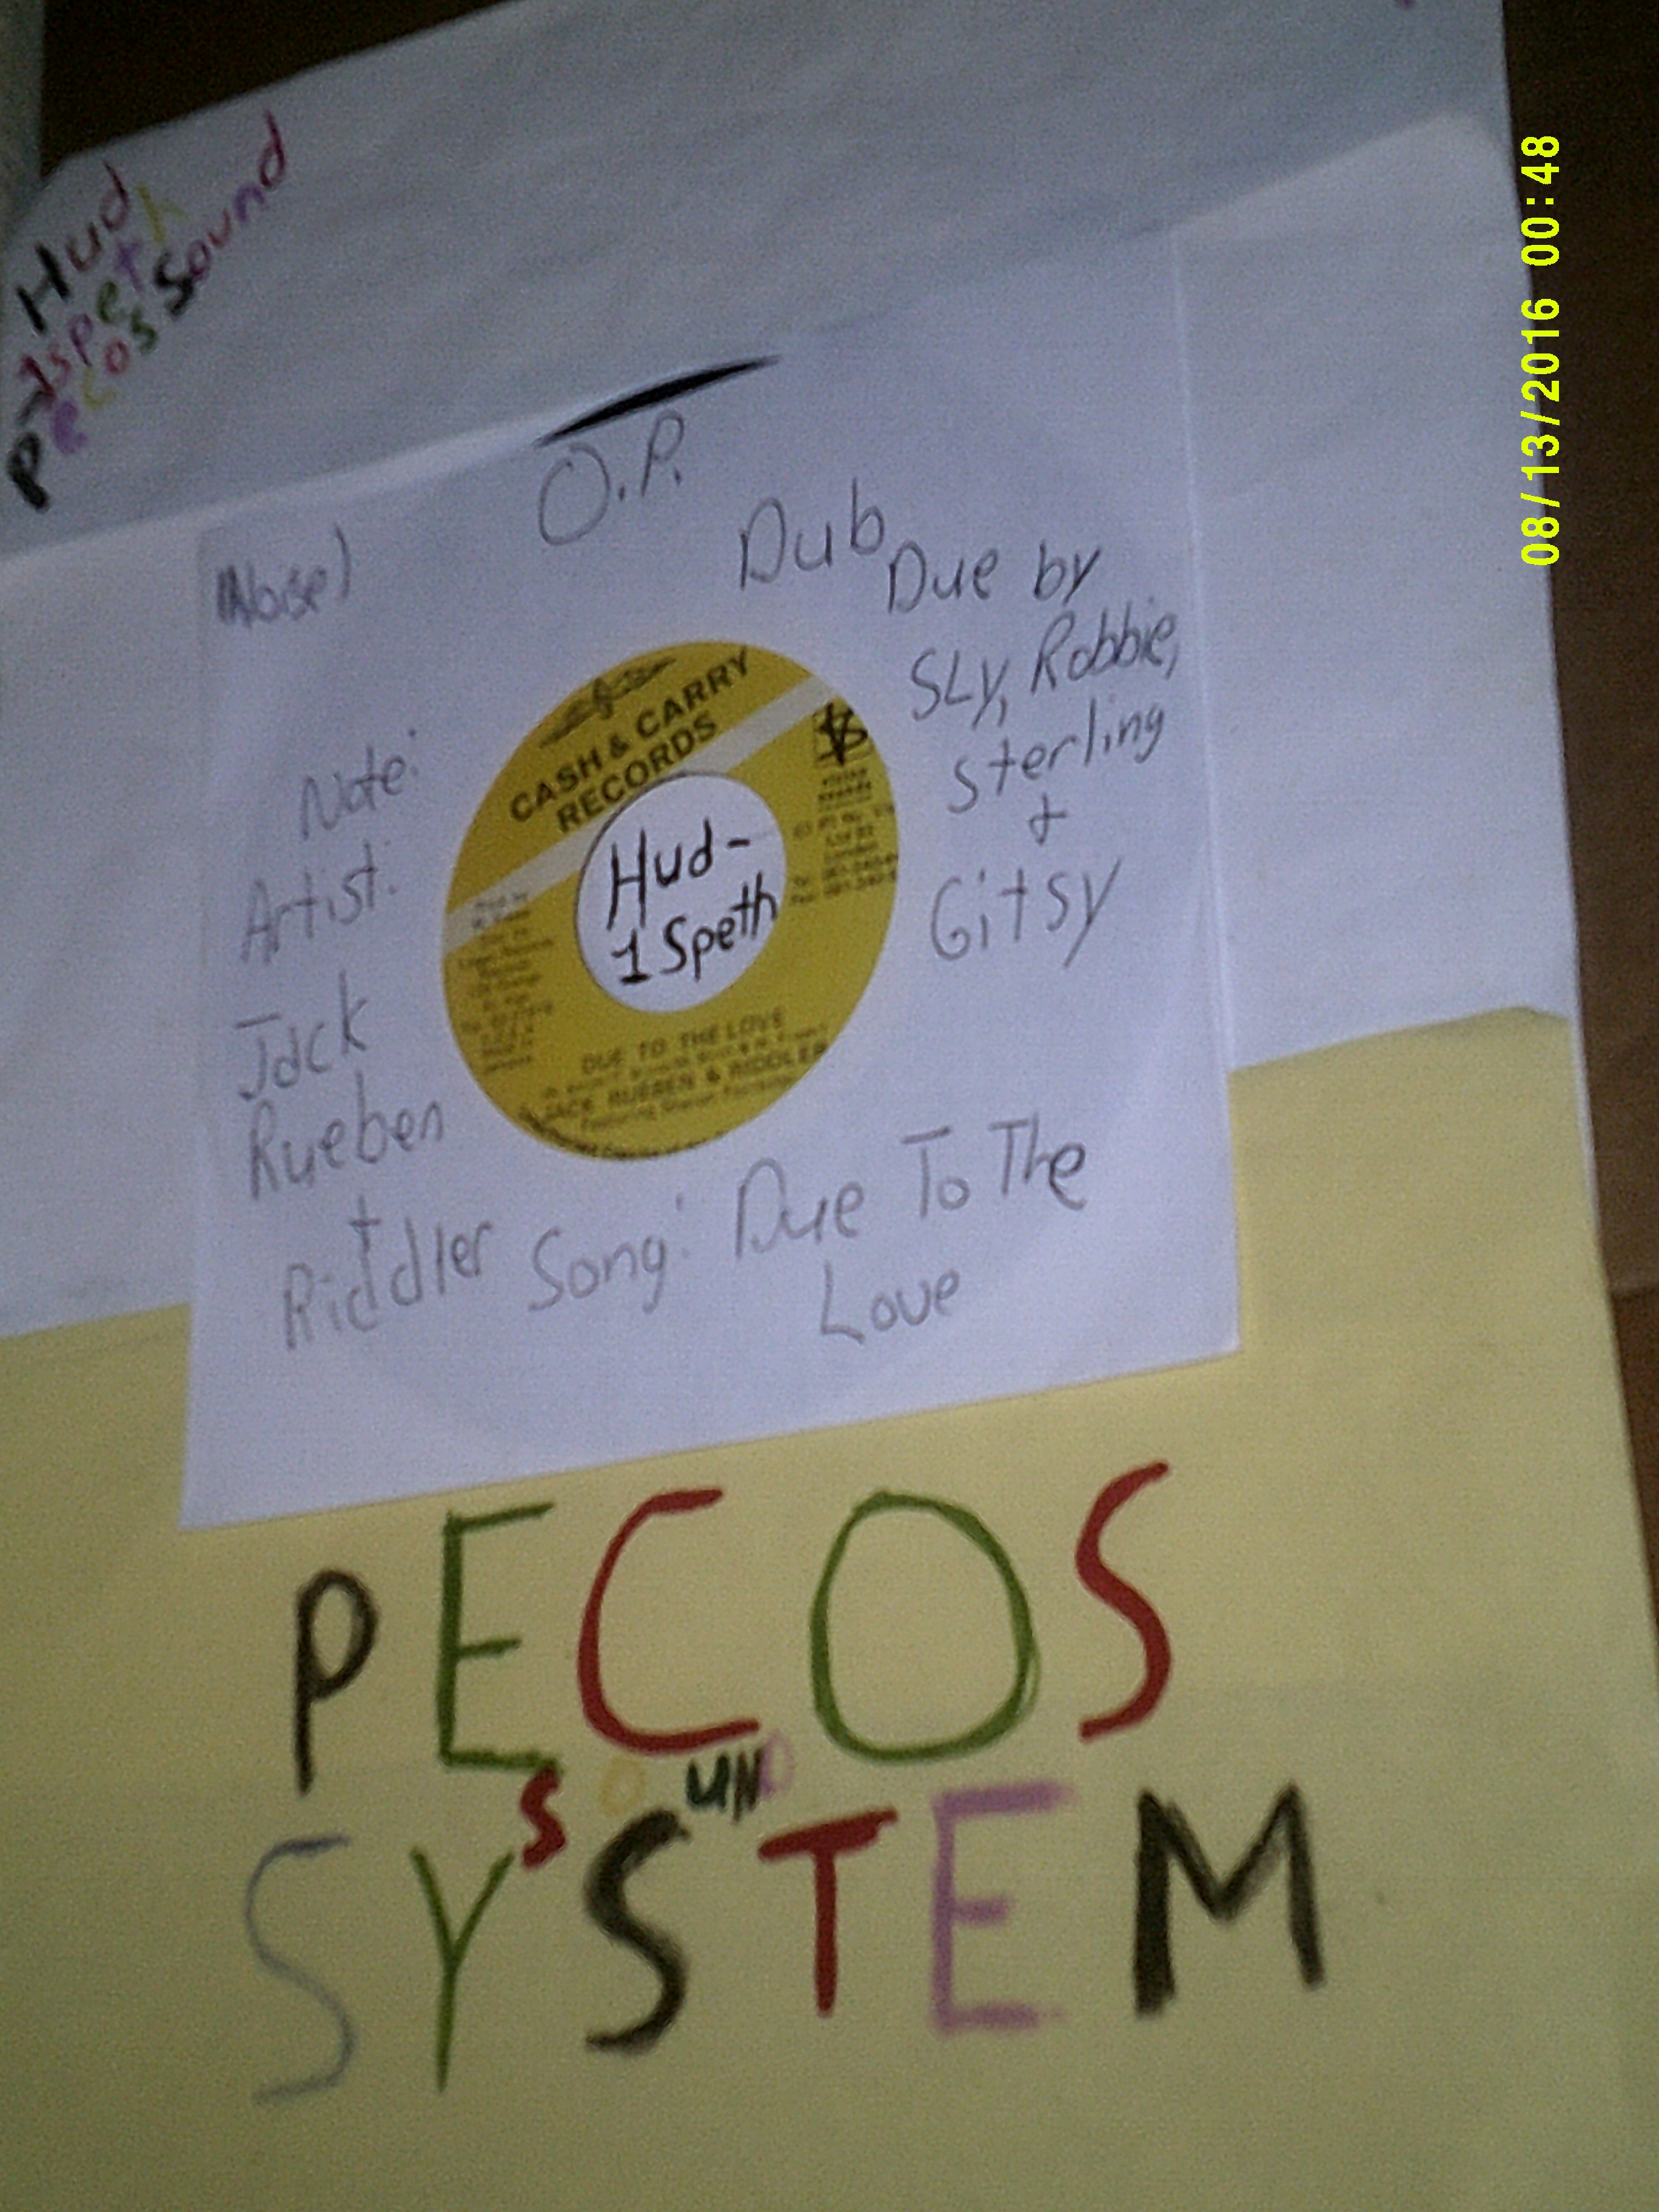 Hud
-1speth
Pecos Sound
08/13/2016 00:48
O.P.
(Noise)
Dub
Due by
SLy, Robbie,
Sterling
+
Gitsy
Note:
Artist:
Jack
Rueben
+
Riddler
Song: Due To The
Love
CASH & CARRY
RECORDS
Hud-
1Speth
DUE TO THE LOVE
JACK RUEBEN & RIDDLER
PECOS
SOUND
SYSTEM